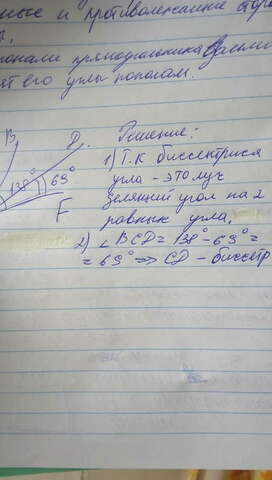 ные и противолежание
оналами прямоугольника
ет его углы пополам.
Решение:
B
D.
138° 69°
F
1) Т.К биссектриса
угла - это луч
делящий угол на 2
равных угла.
2) ∠BCD = 138° - 69° =
= 69° => CD - биссектр